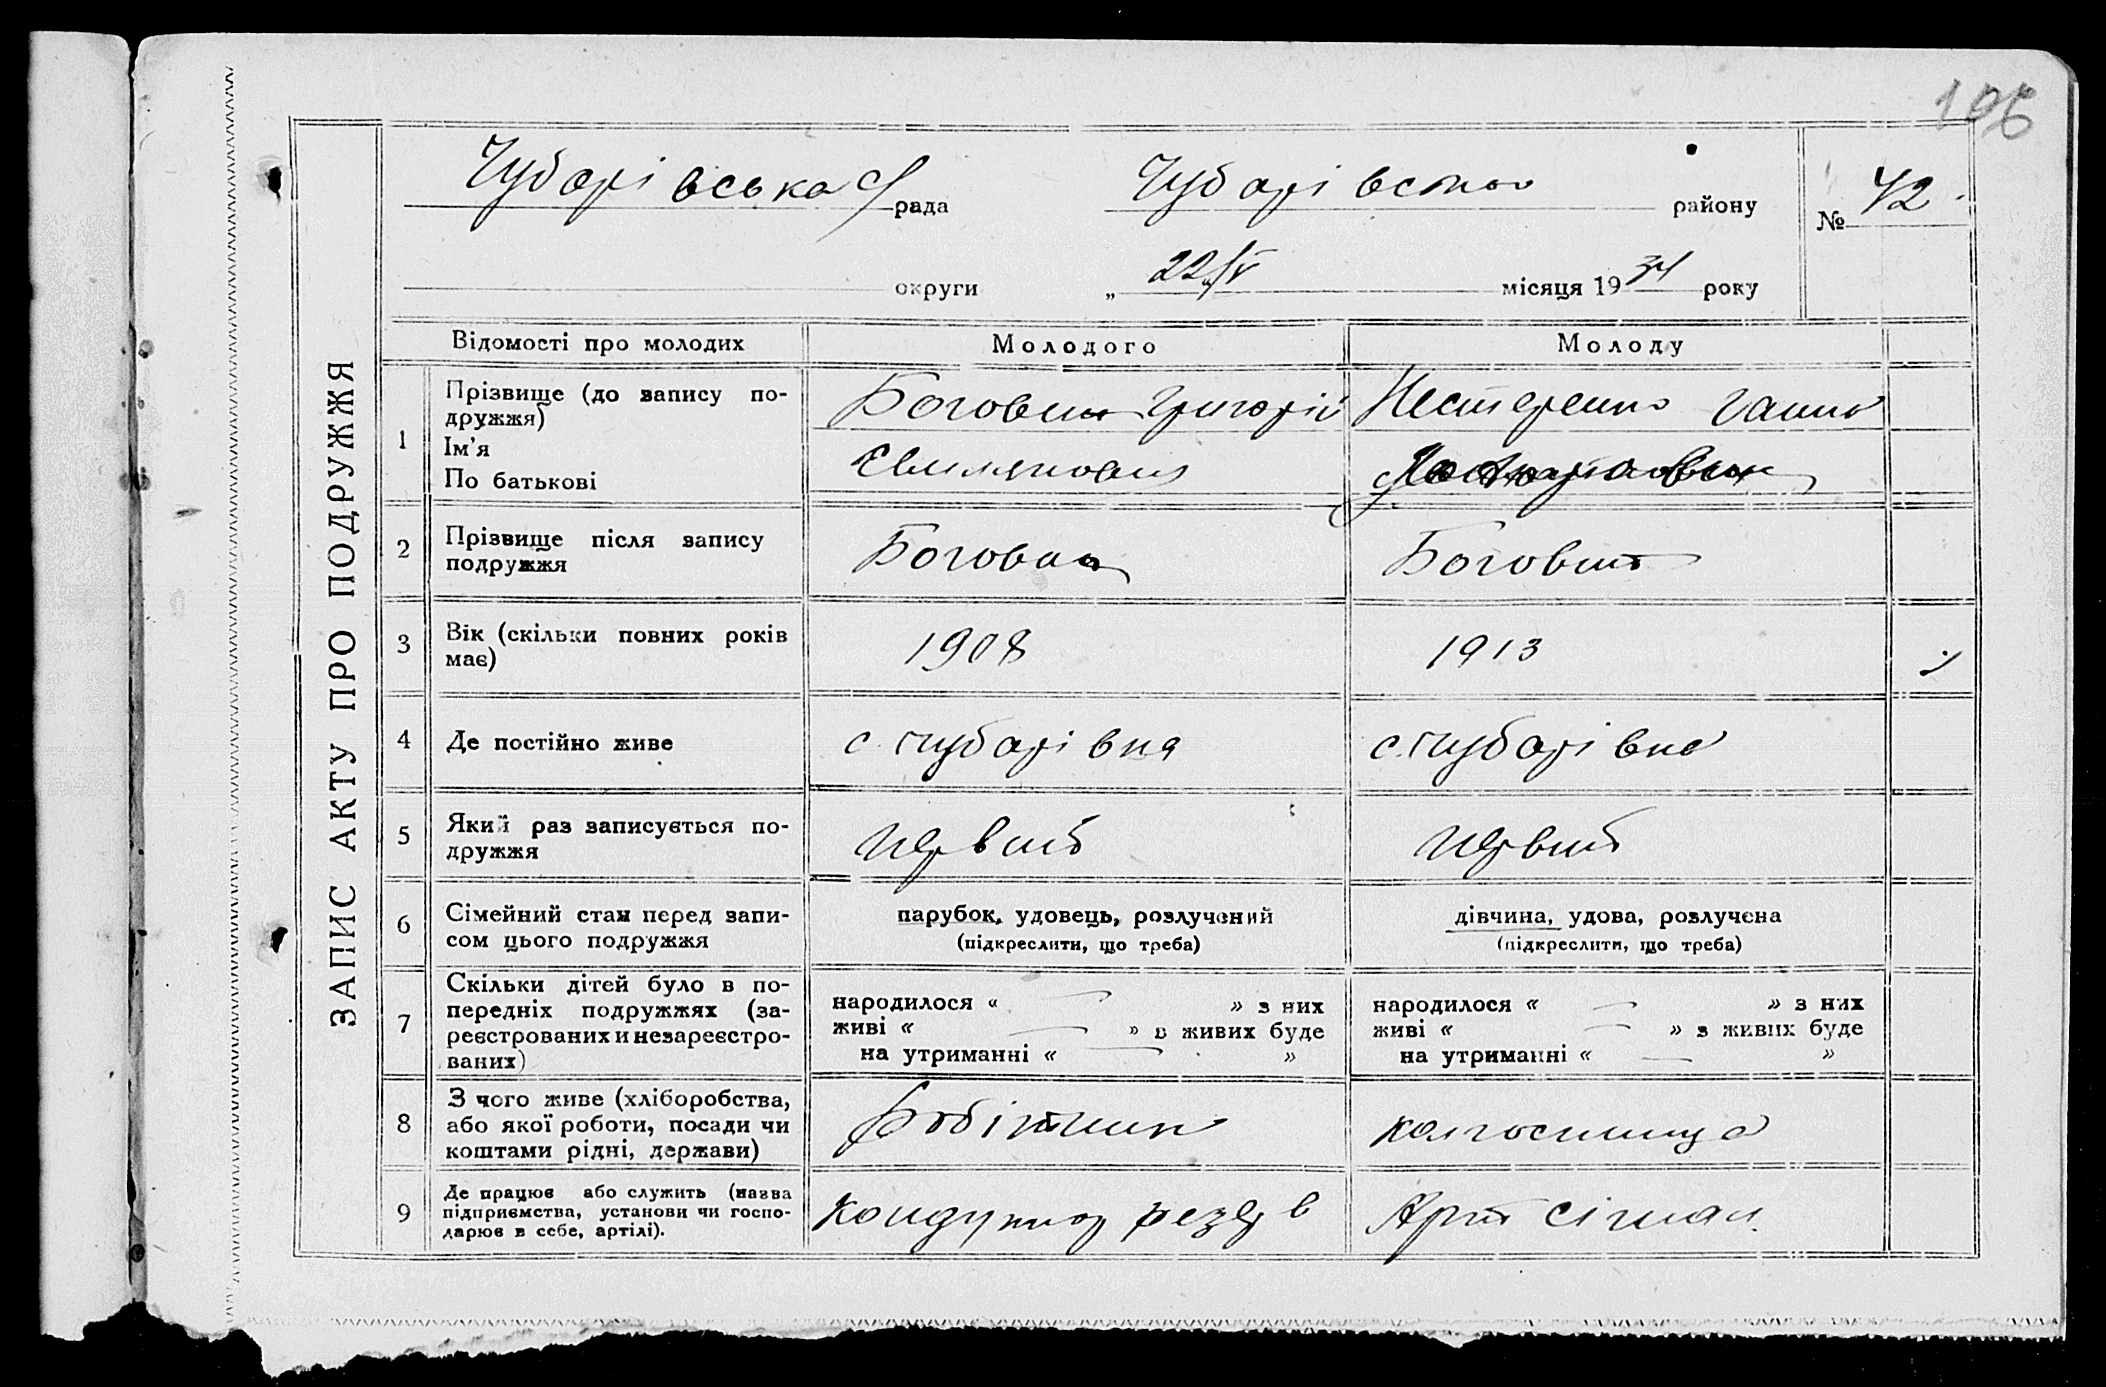 106
ЗАПИС АКТУ ПРО ПОДРУЖЖЯ
Чубарівська с/рада
Чубарівського району
№ 42
округи
„ 22/IV місяця 1934 року
Відомості про молодих
Молодого
Молоду
1
Прізвище (до запису по-
дружжя)
Ім'я
По батькові
Боговин Григорій
Нестеренко Ганна
2
Прізвище після запису
подружжя
Боговин
Боговин
3
Вік (скільки повних років
має)
1908
1913
4
Де постійно живе
с. Чубарівка
с. Чубарівка
5
Який раз записується по-
дружжя
первий
первий
6
Сімейний стан перед запи-
сом цього подружжя
парубок, удовець, розлучений
(підкреслити, що треба)
дівчина, удова, розлучена
(підкреслити, що треба)
7
Скільки дітей було в по-
передніх подружжях (за-
реєстрованих и незареєстро-
ваних)
народилося « — » з них
живі « — » в живих буде
на утриманні « — »
народилося « — » з них
живі « — » з живих буде
на утриманні « — »
8
З чого живе (хліборобства,
або якої роботи, посади чи
коштами рідні, держави)
робітник
колгоспниця
9
Де працює або служить (назва
підприємства, установи чи госпо-
дарює в себе, артілі).
кондуктор резерв
Арт Сігнал